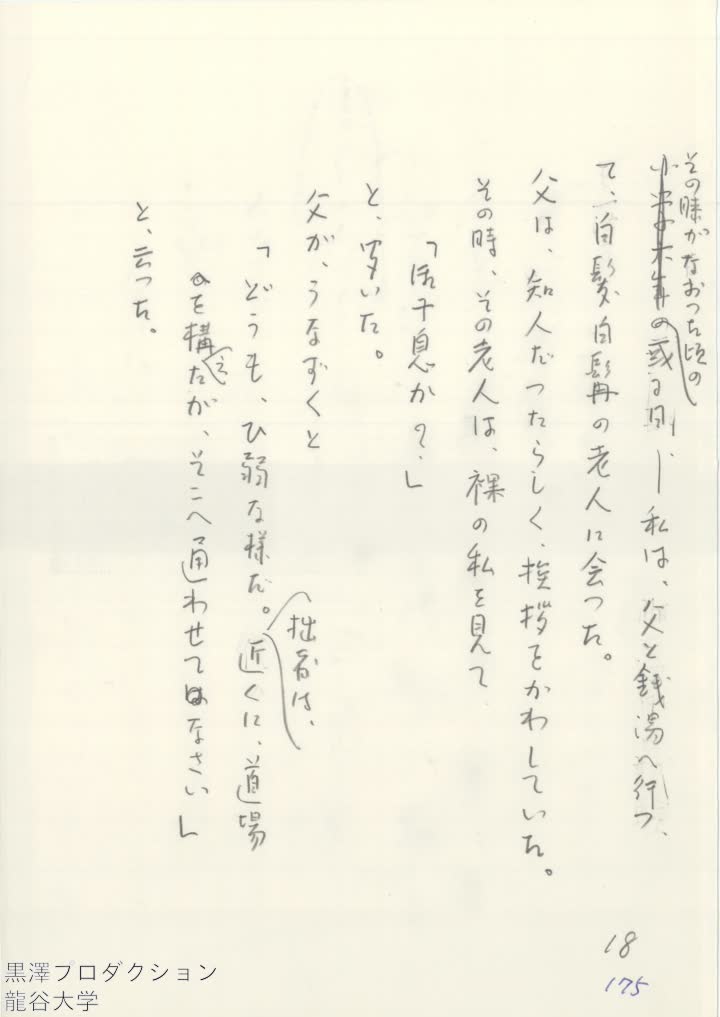 その腫がなおつた頃の
小学六年の或る日、――私は、父と銭湯へ行つ
て、白髪白髯の老人に会つた。
父は、知人だつたらしく、挨拶をかわしていた。
その時、その老人は、裸の私を見て
「活千息か？」
と、聞いた。
父が、うなずくと
「どうも、ひ弱な様だ。近くに、道場
拙者は、
を構えたが、そこへ通わせてはなさい」
と、云つた。
18
175
黒澤プロダクション
龍谷大学